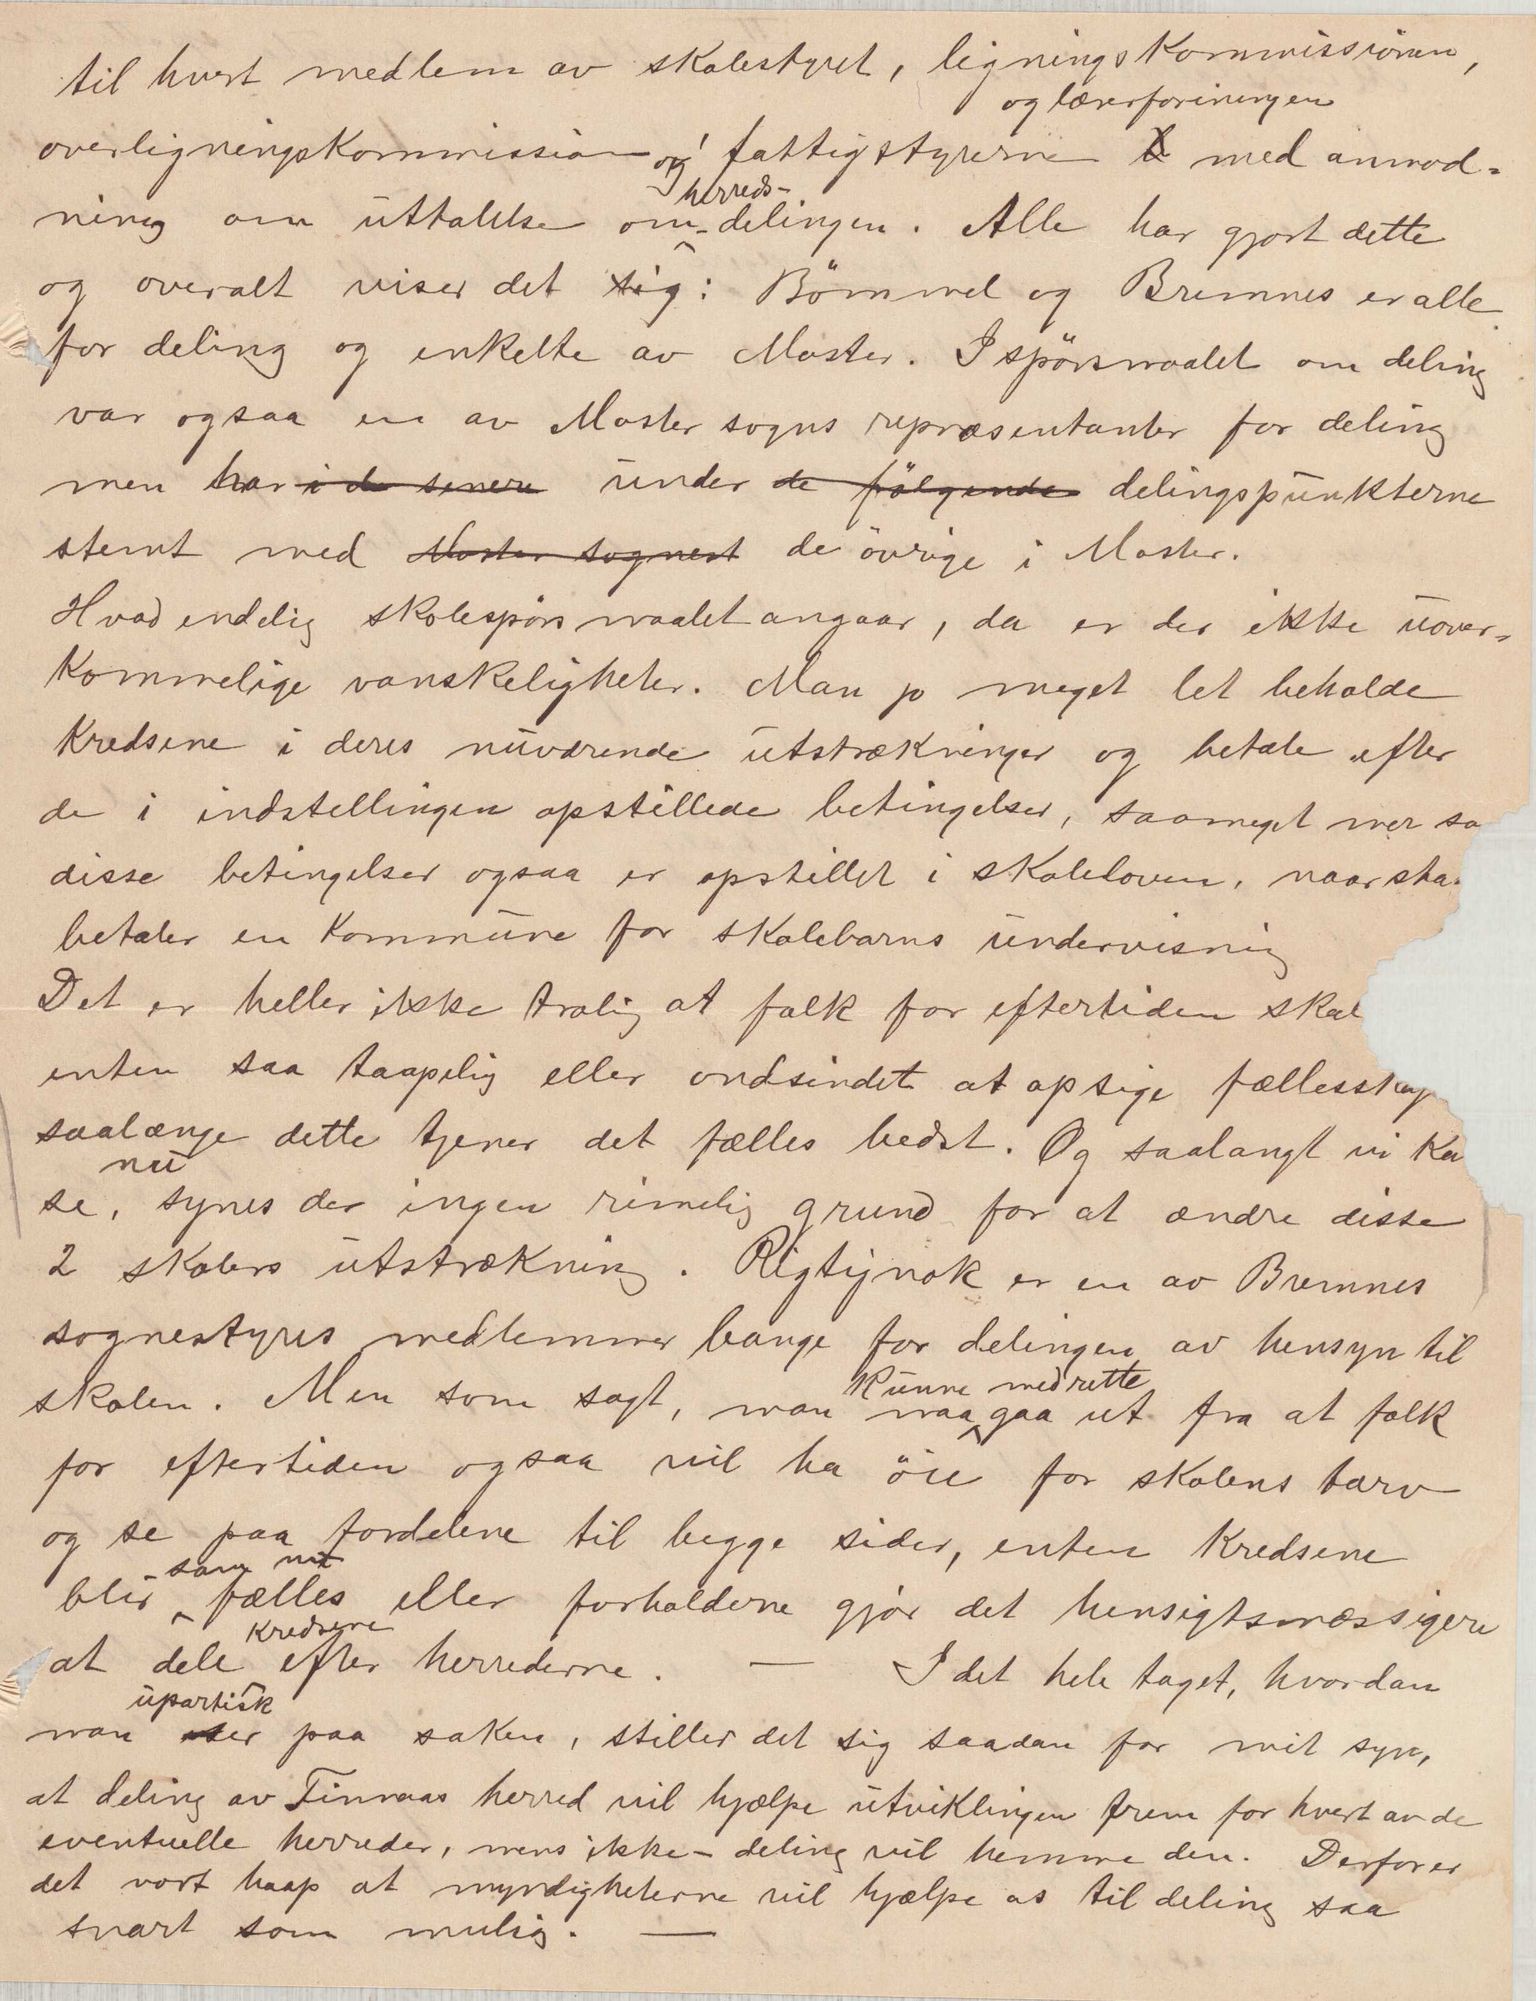 til hvert medlem av skolestyret, ligningskommissionen,
og lærerforeningen
overligningskommission og fattigstyrerne med anmod-
herreds-
ning om uttalelse om delingen. Alle har gjort dette
og overalt viser det sig: Bömmel og Bremnes er alle
for deling og enkelte av Moster. I spörsmaalet om deling
var ogsaa en av Moster sogns repræsentanter for deling
men har i de senere under de fölgende delingspunkterne
stemt med Moster sognest de övrige i Moster.
Hvad endelig skolespörsmaalet angaar, da er der ikke uover-
kommelige vanskeligheter. Man jo meget let beholde
kredsene i deres nuværende utstrækninger og betale efter
de i indstillingen opstillede betingelser, saameget mer so
disse betingelser ogsaa er opstillet i skoleloven, naar sta
betaler en kommune for skolebarns undervisning
Det er heller ikke trolig at folk for eftertiden skal
enten saa taapelig eller ondsindet at opsige fællesskap
saalænge dette tjener det fælles bedst. Og saalangt vi ka
nu
se, synes der ingen rimelig grund for at ændre disse
2 skolers utstrækning. Rigtignok er en av Bremnes
sognestyres medlemmer bange for delingen av hensyn til
kunne med rette
skolen. Men som sagt, man maa gaa ut fra at folk
for eftertiden ogsaa vil ha öie for skolens tarv
og se paa fordelene til begge sider, enten kredsene
som nu
blir fælles eller forholderne gjör det hensigtsmæssigere
kredsene
at dele efter herrederne. — I det hele taget, hvordan
upartisk
man ser paa saken, stiller det sig saadan for mit syn,
at deling av Finnaas herred vil hjælpe utviklingen frem for hvert av de
eventuelle herreder, mens ikke-deling vil hemme den. Derfor er
det vort haap at myndigheterne vil hjælpe os til deling saa
snart som mulig. —